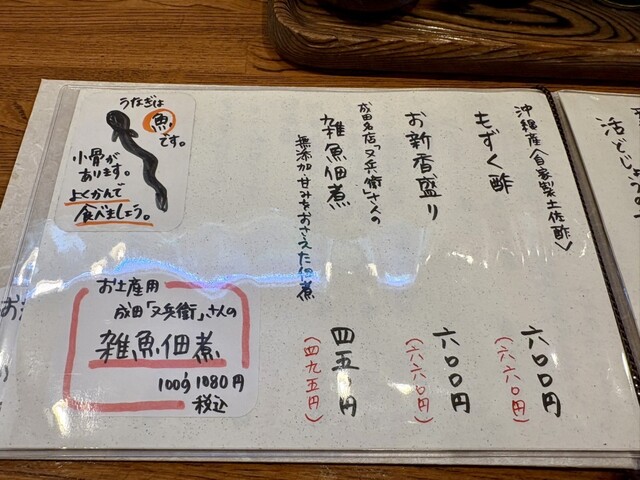 沖縄産〈自家製土佐酢〉
もずく酢
六〇〇円
(六六〇円)
お新香盛り
六〇〇円
(六六〇円)
成田名店「又兵衛」さんの
雑魚佃煮
無添加・甘みをおさえた佃煮
四五〇円
(四九五円)
うなぎは
魚
です。
小骨が
あります。
よくかんで
食べましょう。
お土産用
成田「又兵衛」さんの
雑魚佃煮
100g 1080円
税込
活どじょう
お
の